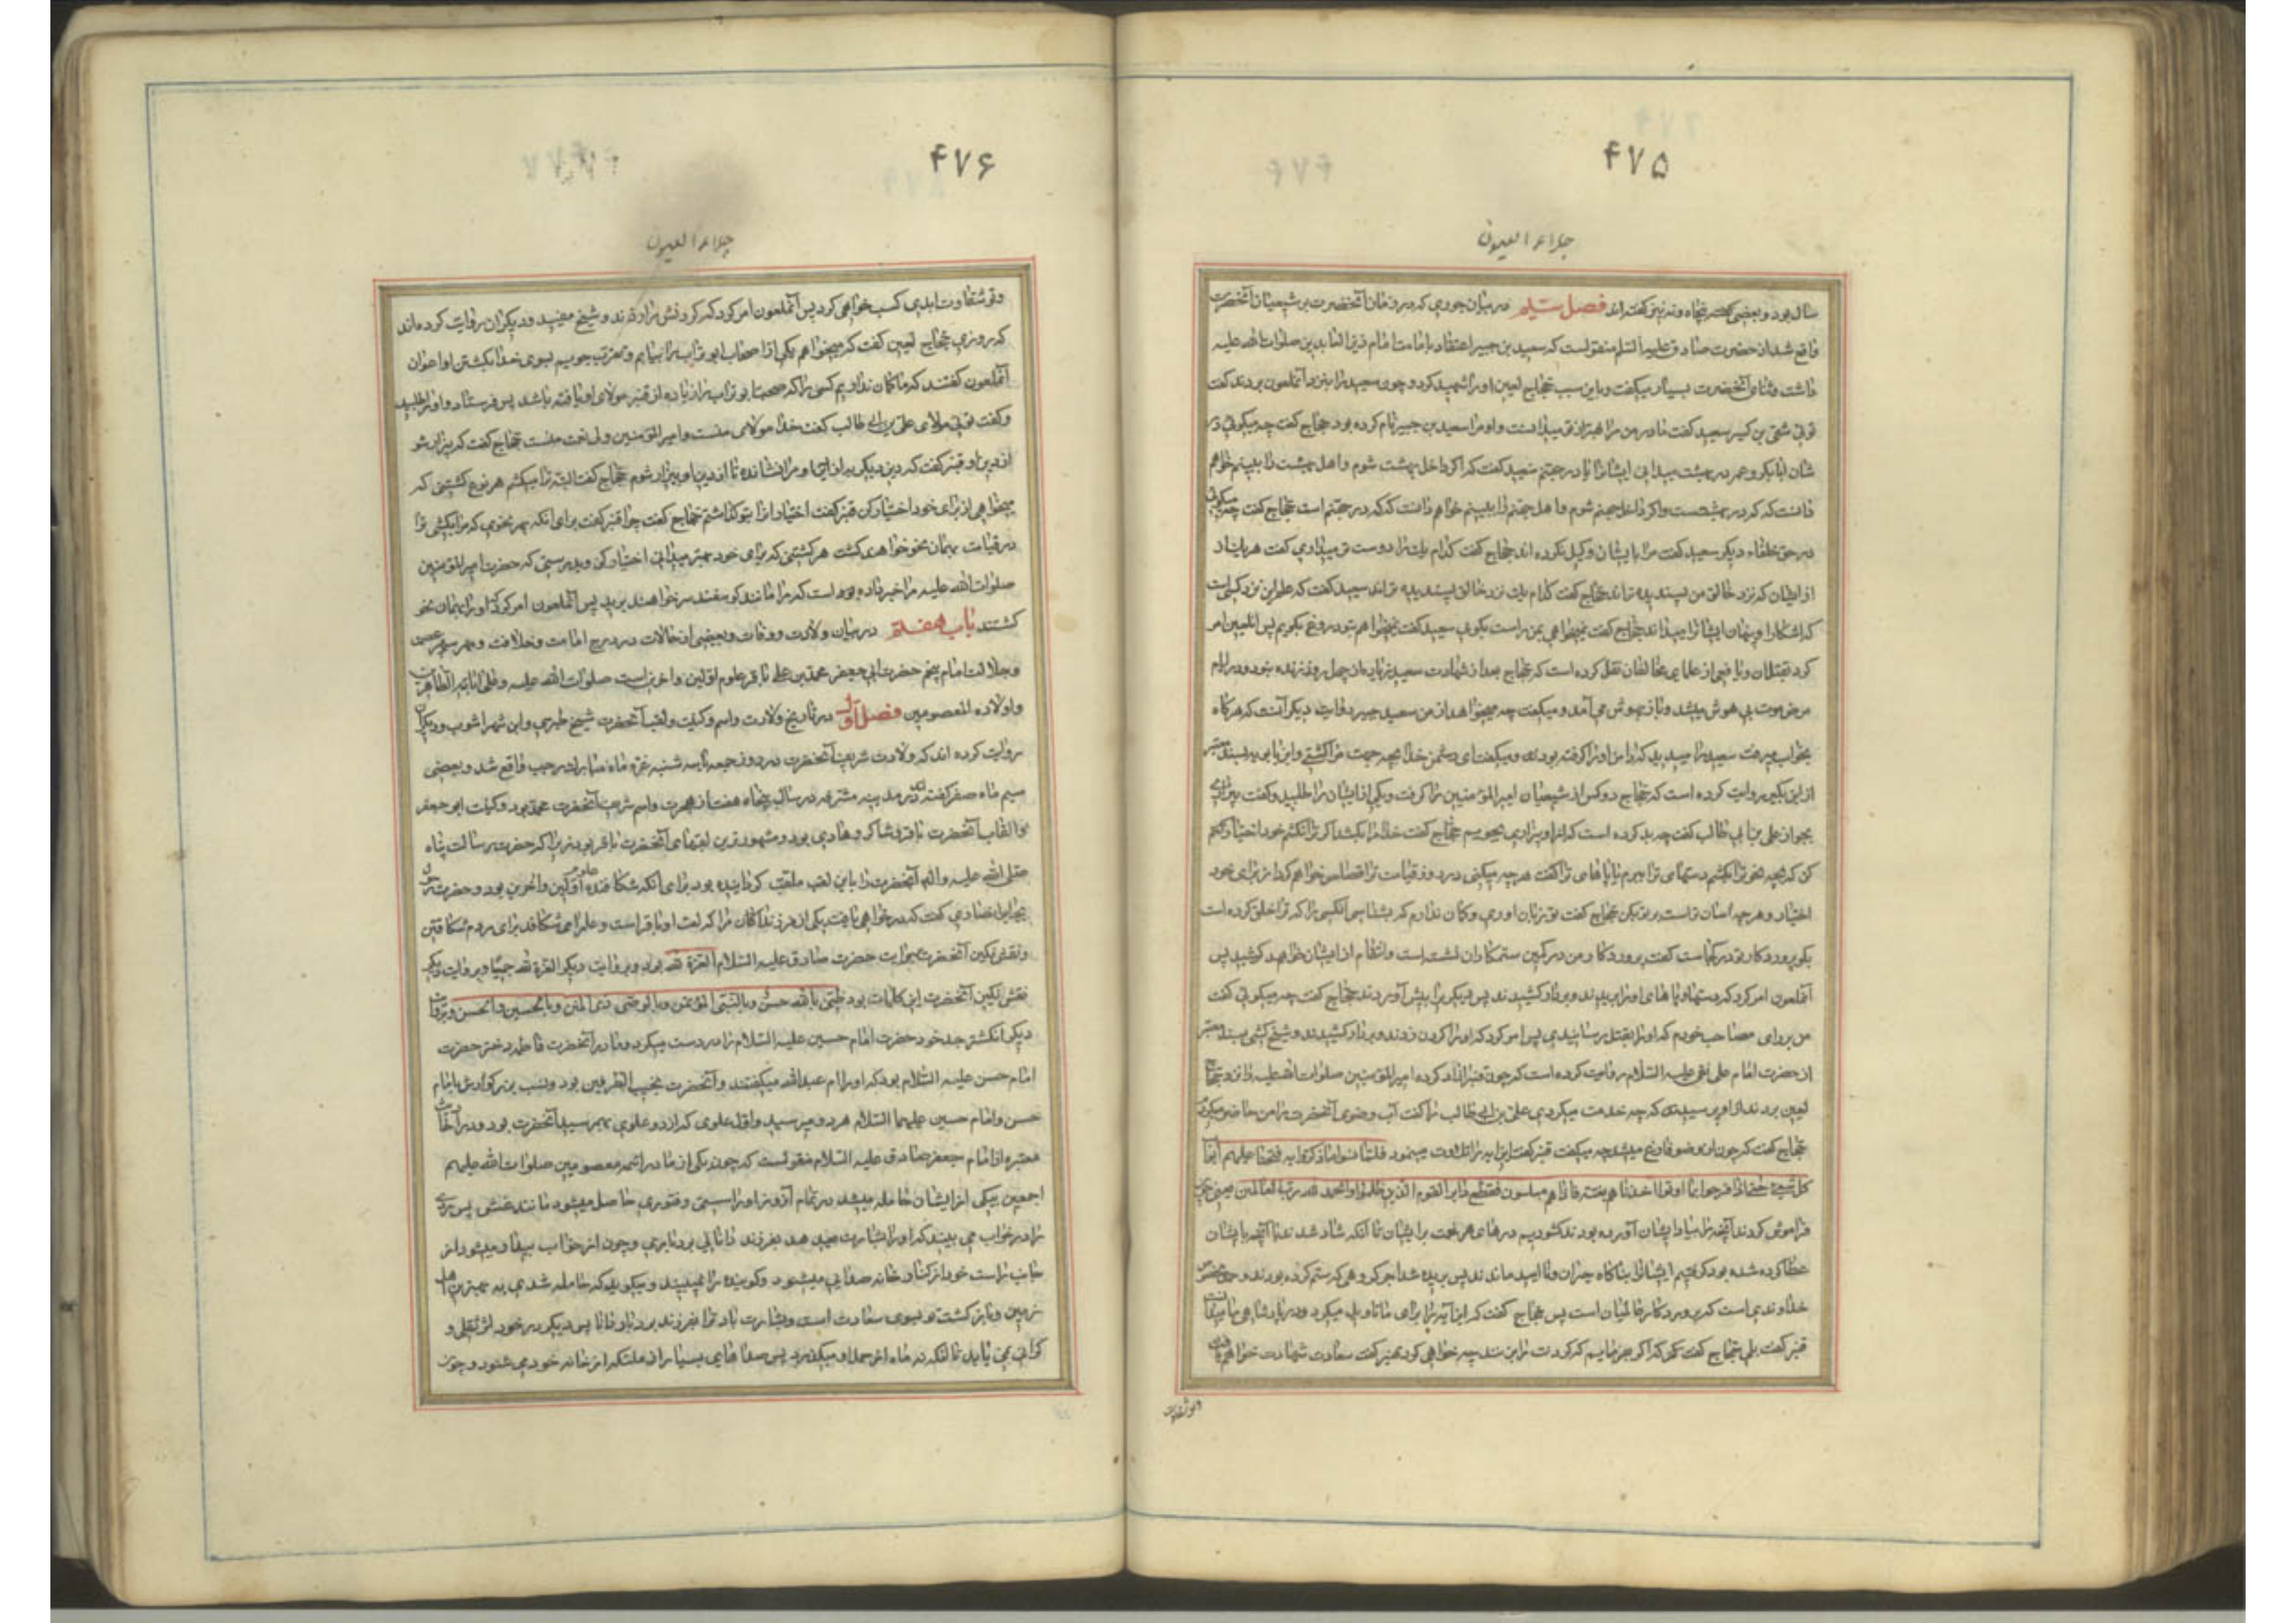 ۴۷۵
جلاء العیون
سال بود و بعضی پنجاه و نه نیز گفته اند فصل در بیان جوری که در زمان آنحضرت بر شیعیان آنحضرت
واقع شد از حضرت صادق علیه السلم منقولست که سعید بن جبیر اعتقاد بامامت امام زین العابدین صلوات الله علیه
داشت و ثنای آنحضرت بسیار میگفت و باین سبب حجاج لعین او را شهید کرد و چون سعید را بنزد آنملعون بردند گفت
توئی شقی بن کسیر سعید گفت مادر من مرا بهتر از تو میدانست و او مرا سعید بن جبیر نام کرده بود حجاج گفت چه میگوئی در
شان ابابکر و عمر در بهشت میدانی ایشانرا یا در جهنم سعید گفت که اگر داخل بهشت شوم و اهل بهشت را ببینم خواهم
دانست که که در بهشتست و اگر داخل جهنم شوم و اهل جهنم را ببینم خواهم دانست که که در جهنم است حجاج گفت چه میگوئی
در حق خلفاء دیگر سعید گفت مرا بایشان وکیل نکرده اند حجاج گفت کدام یك را دوست تر میداری گفت هر یك از
از ایشان که نزد خالق من پسندیده تراند حجاج گفت کدام یك نزد خالق پسندیده تراند سعید گفت که علم این نزد کسی است
که اشکارا و پنهان ایشانرا میداند حجاج گفت نمیخواهی بمن راست بگویی سعید گفت نمیخواهم بتو دروغ بگویم پس آنلعین امر
کرد بقتل آن و یافعی از علمای مخالفان نقل کرده است که حجاج بعد از شهادت سعید زیاده از چهل روز زنده نبود و در ایام
مرض موت بی هوش میشد و باز بهوش می آمد و میگفت چه میخواهد از من سعید جبیر و روایت دیگر آنست که هرگاه
بخواب میرفت سعید را میدید که دامن او را گرفته بود و میگفت ای دشمن خدا بچه جهت مرا کشتی و ابن بابویه بسند معتبر
از ابن بکیر روایت کرده است که حجاج دو کس از شیعیان امیر المؤمنین را گرفت و یکی از ایشان را طلبید و گفت بیزاری
بجو از علی بن ابی طالب گفت چه بد کرده است که از او بیزاری بجویم حجاج گفت خدا مرا بکشد اگر ترا نکشم خود اختیار
کن که بچه نحو ترا بکشم دستهای ترا ببرم یا پاهای ترا گفت هر چه میکنی در روز قیامت ترا قصاص خواهم کرد از برای خود
اختیار و هر چه آسان تر است بر تو بکن حجاج گفت تو زبان اوری و گمان ندارم که بشناسی آنکسی را که ترا خلق کرده است
بگو پروردگار تو در کجاست گفت پروردگار من در کمین ستمکاران نشسته است و انتقام از ایشان خواهد کشید پس
آنملعون امر کرد که دستها و پاهای او را بریدند و بر دار کشیدند پس دیگر را پیش آوردند حجاج گفت چه میگوئی گفت
من بر رای مصاحب خودم که او را بقتل رسانیدی پس امر کرد که او را گردن زدند و بر دار کشیدند و شیخ کشی بسند معتبر
از حضرت امام علی نقی علیه السلام روایت کرده است که چون قنبر ازاد کرده امیر المؤمنین صلوات الله علیه را نزد حجاج
لعین بردند از او پرسید که چه خدمت میکردی علی بن ابی طالب را گفت آب وضوی آنحضرت را من حاضر میکردم
حجاج گفت که چون از وضو فارغ میشد چه میگفت قنبر گفت این آیه را تلاوت مینمود فلما نسوا ما ذکروا به فتحنا علیهم ابواب
کل شیء حتی اذا فرحوا بما اوتوا اخذناهم بغتة فاذا هم مبلسون فقطع دابر القوم الذین ظلموا و الحمد لله رب العالمین یعنی چون
فراموش کردند آنچه را بیاد ایشان آورده بودند گشودیم درهای هر نعمت بر ایشان تا آنکه شاد شدند با آنچه بایشان
عطا کرده شده بود گرفتیم ایشانرا بناگاه حیران و ناامید ماندند پس بریده شد آخر گروهی که ستم کرده بودند و حمد مختص
خداوندی است که پروردگار عالمیان است پس حجاج گفت که این آیه را برای ما تاویل میکرد و در پادشاهی ما میدانست
قنبر گفت بلی حجاج گفت که اگر بفرمایم که گردنت را بزنند چه خواهی کرد قنبر گفت سعادت شهادت خواهم یافت
۴۷۶
جلاء العیون
و تو شقاوت ابدی کسب خواهی کرد پس آنملعون امر کرد که گردنش را زدند و شیخ مفید و دیگران روایت کرده اند
که روزی حجاج لعین گفت که میخواهم یکی از اصحاب ابو تراب را بیابم و تقرب جویم بسوی خدا بکشتن او اعوان
آنملعون گفتند که ما گمان نداریم کسی را که صحبت ابو تراب را زیاده از قنبر مولای او یافته باشد پس فرستاد و او را طلبید
و گفت توئی مولای علی بن ابی طالب گفت خدا مولای منست و امیر المؤمنین ولی نعمت منست حجاج گفت که بیزار شو
از دین او قنبر گفت که دین دیگر به از این مرا نشان ده تا از دین او بیزار شوم حجاج گفت البته ترا میکشم هر نوع کشتنی که
میخواهی از برای خود اختیار کن قنبر گفت اختیار انرا بتو گذاشتم حجاج گفت چرا قنبر گفت برای آنکه بهر نحوی که مرا بکشی ترا
در قیامت بهمان نحو خواهند کشت هر کشتنی که برای خود بهتر میدانی اختیار کن و بدرستی که حضرت امیر المؤمنین
صلوات الله علیه مرا خبر داده بوده است که مرا مانند گوسفند سر خواهند برید پس آنملعون امر کرد که او را بهمان نحو
کشتند باب هفتم در بیان ولادت و وفات و بعضی از حالات در درج امامت و خلافت و مهر سپهر عصمت
و جلالت امام پنجم حضرت ابی جعفر محمد بن علی باقر علوم اولین و اخرین است صلوات الله علیه و علی ابائه الطاهرین
و اولاده المعصومین فصل اول در تاریخ ولادت و اسم و کنیت و لقب آنحضرت شیخ طبرسی و ابن شهراشوب و دیگران
روایت کرده اند که ولادت شریف آنحضرت در روز جمعه یا سه شنبه غره ماه مبارك رجب واقع شد و بعضی
سیم ماه صفر گفته اند در مدینه مشرفه در سال پنجاه هفت از هجرت و اسم شریف آنحضرت محمد بود و کنیت ابو جعفر
و القاب آنحضرت باقر و شاکر و هادی بود و مشهورترین لقبهای آنحضرت باقر بود زیرا که حضرت رسالت پناه
صلی الله علیه و اله آنحضرت را باین لقب ملقب گردانیده بود برای آنکه شکافنده علوم اولین و اخرین بود و حضرت رسول
بجابر انصاری گفت که در خواهی یافت یکی از فرزندان مرا که لقب او باقر است و علم را می شکافد برای مردم شکافتنی
و نقش نگین آنحضرت بروایت حضرت صادق علیه السلام العزة لله بود و بروایت دیگر العزة لله جمیعا و بروایت دیگر
نقش نگین آنحضرت این کلمات بود ظنی بالله حسن و بالنبی المؤتمن و بالوصی ذی المنن و بالحسین و الحسن و بروایت
دیگر انگشتر جد خود حضرت امام حسین علیه السلام را در دست میکرد و مادر آنحضرت فاطمه دختر حضرت
امام حسن علیه السلام بود که او را ام عبدالله میگفتند و آنحضرت نجیب الطرفین بود و نسب بزرگوارش بامام
حسن و امام حسین علیهما السلام هر دو میرسید و اول علوی که از دو علوی بهم رسید آنحضرت بود و در احادیث
معتبره از امام جعفر صادق علیه السلام منقولست که چون یکی از مادر ائمه معصومین صلوات الله علیهم
اجمعین بیکی از ایشان حامله میشد در تمام آن روز او را سستی و فتوری حاصل میشود مانند غشی پس مردی
را در خواب می بیند که او را بشارت میدهد بفرزند دانای بردباری و چون از خواب بیدار میشود از
جانب راست خود از کنار خانه صدایی میشنود و گوینده را نمیبیند و میگوید که حامله شدی به بهترین اهل
زمین و بازگشت تو بسوی سعادت است و بشارت باد ترا بفرزند بردبار دانا پس دیگر در خود ثقلی و
گرانی نمی یابد تا آنکه نه ماه از حمل او میگذرد پس صداهای بسیار از ملئکه از خانه خود می شنود و چون